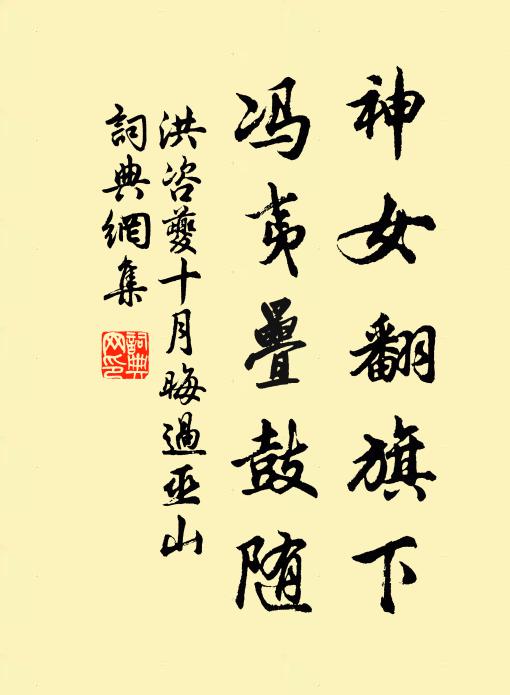 神女翻旗下
冯夷疊鼓随
洪咨夔十月晦過巫山
詞典網集
詞典網印